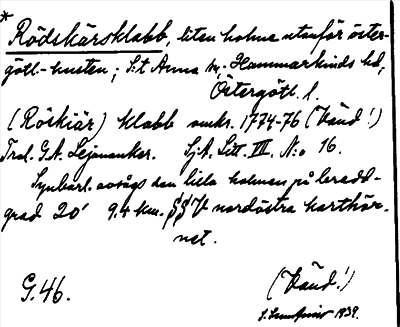 *
Rödskärsklabb, liten holme utanför öster-
götl-kusten; S:t Anna sn, Hammarkinds hd,
Östergötl. l.
(Röskiär) klabb smkr. 1774-76 (Vänd!)
Trol. G.A. Lejonanker. Sj.A. Litt. III. N:o 16.
Synbarl. avsågs den lilla holmen på bredd-
grad 20' 9.4 km. §§ V nordöstra karthör-
net.
G.46.
(Vänd!)
1939.